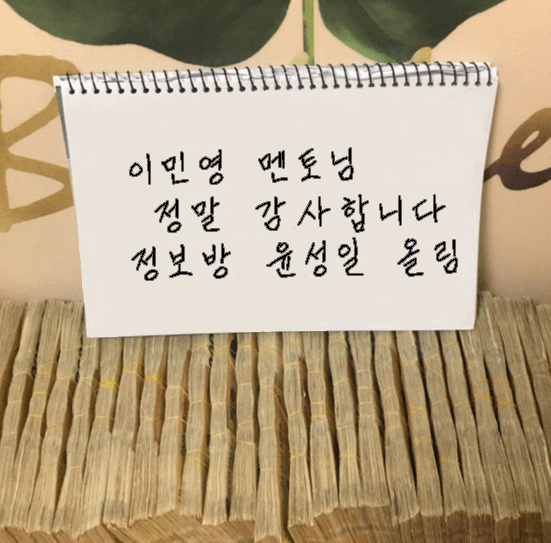 이민영 멘토님
정말 감사합니다
정보방 윤성일 올림
B e